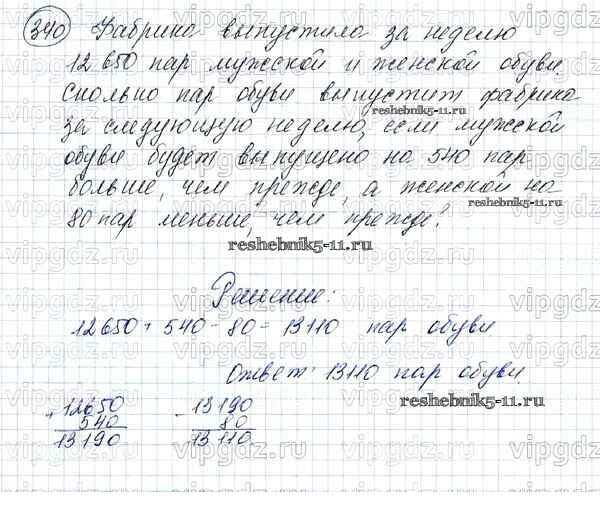 340 Фабрика выпустила за неделю
12 650 пар мужской и женской обуви.
Сколько пар обуви выпустит фабрика
reshebnik5-11.ru
за следующую неделю, если мужской
обуви будет выпущено на 540 пар
больше, чем прежде, а женской на
reshebnik5-11.ru
80 пар меньше, чем прежде?
reshebnik5-11.ru
Решение:
12650 + 540 - 80 = 13110 пар обуви
Ответ: 13110 пар обуви.
reshebnik5-11.ru
+ 12650 - 13190
540 80
13190 13110
vipgdz.com